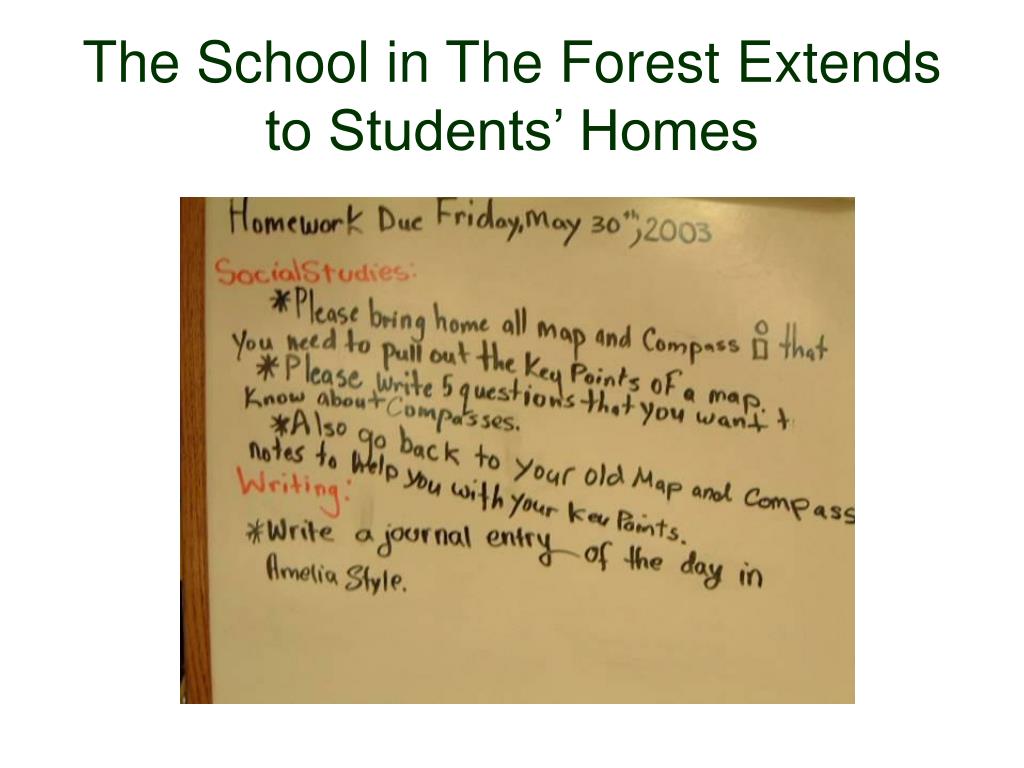 The School in The Forest Extends
to Students’ Homes
Homework Due Friday, May 30th, 2003
Social Studies:
*Please bring home all map and Compass that
you need to pull out the Key Points of a map.
*Please write 5 questions that you want t
Know about Compasses.
*Also go back to your old Map and Compass
notes to help you with your Key Points.
Writing:
*Write a journal entry of the day in
Amelia Style.